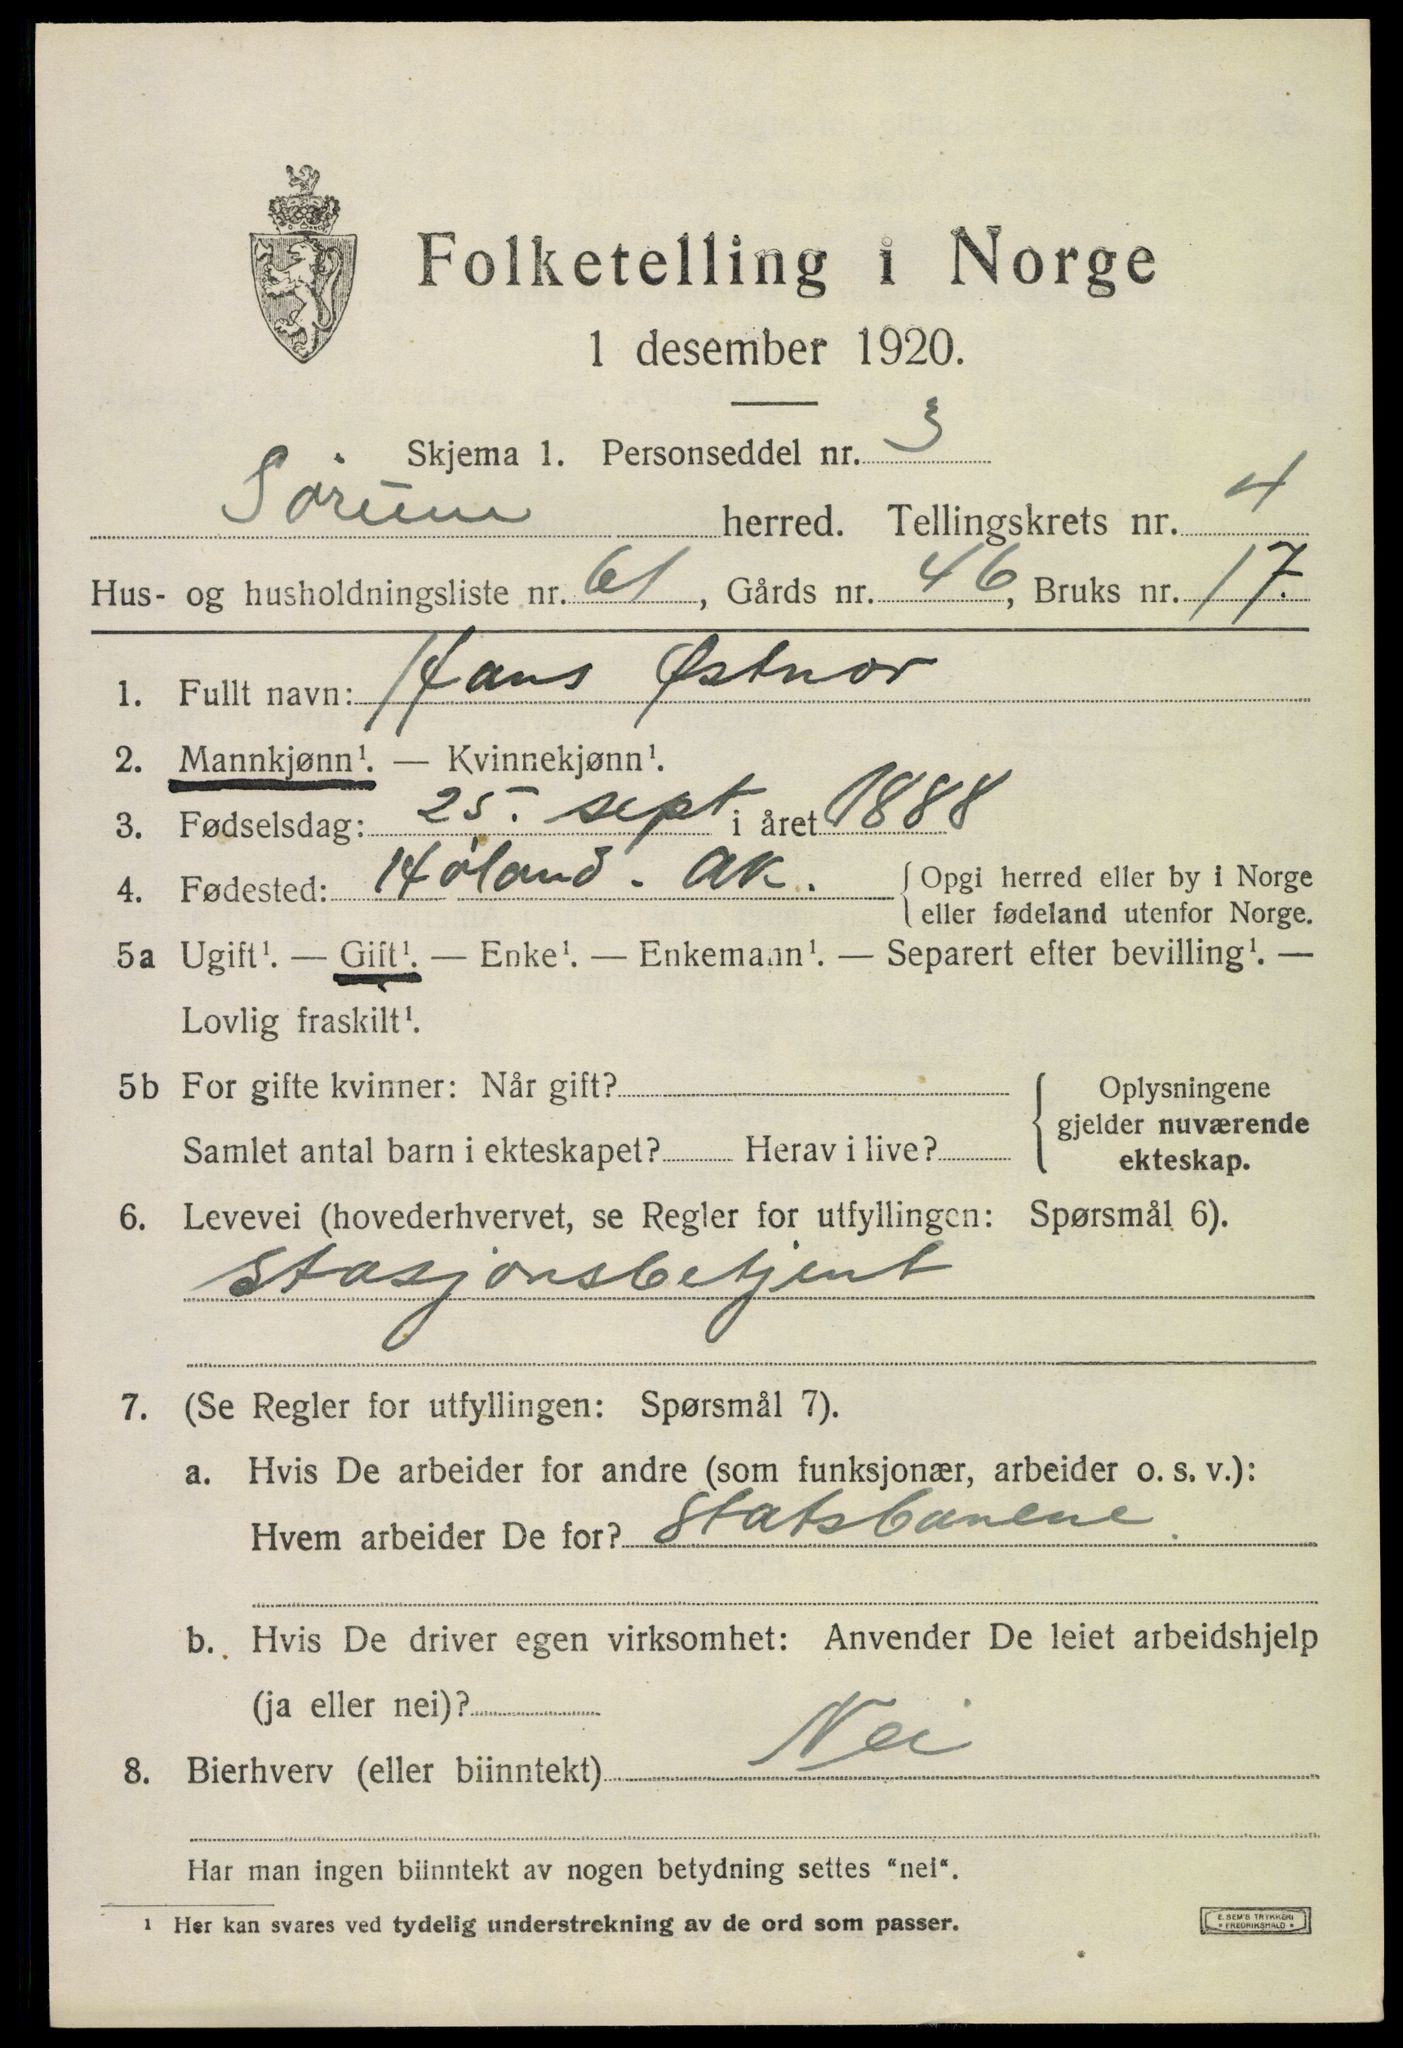 Folketelling i Norge
1 desember 1920.
Skjema 1. Personseddel nr. 3
Sørum herred. Tellingskrets nr. 4
Hus- og husholdningsliste nr. 61, Gårds nr. 46, Bruks nr. 17.
1. Fullt navn: Hans Østnor
2. Mannkjønn¹. — Kvinnekjønn¹.
3. Fødselsdag: 25. sept i året 1888
4. Fødested: Høland. Ak. { Opgi herred eller by i Norge
eller fødeland utenfor Norge.
5a Ugift¹. — Gift¹. — Enke¹. — Enkemann¹. — Separert efter bevilling¹. —
Lovlig fraskilt¹.
5b For gifte kvinner: Når gift?
Samlet antal barn i ekteskapet? Herav i live?
{ Oplysningene
gjelder nuværende
ekteskap.
6. Levevei (hovederhvervet, se Regler for utfyllingen: Spørsmål 6).
Stasjonsbetjent
7. (Se Regler for utfyllingen: Spørsmål 7).
a. Hvis De arbeider for andre (som funksjonær, arbeider o. s. v.):
Hvem arbeider De for? Statsbanene.
b. Hvis De driver egen virksomhet: Anvender De leiet arbeidshjelp
(ja eller nei)?
8. Bierhverv (eller biinntekt) Nei
Har man ingen biinntekt av nogen betydning settes "nei".
¹ Her kan svares ved tydelig understrekning av de ord som passer.
E. SEM'S TRYKKERI
* FREDRIKSHALD *